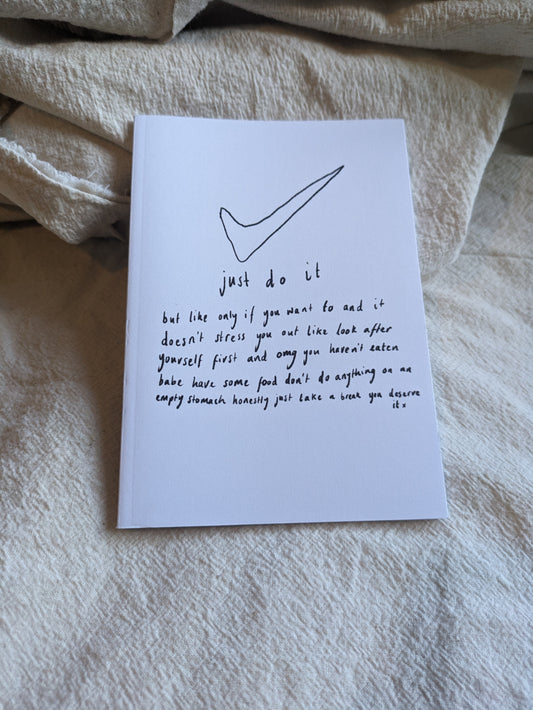 just do it
but like only if you want to and it
doesn't stress you out like look after
yourself first and omg you haven't eaten
babe have some food don't do anything on an
empty stomach honestly just take a break you deserve
it x